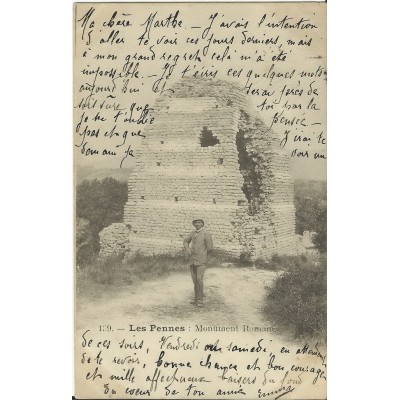 Ma chère Marthe - J'avais l'intention
d'aller te voir ces jours derniers, mais
à mon grand regret celà m'a été
impossible. - Je t'écris ces quelques mots
aujourd'hui et serai près de
toi par la
pensée -
suis sûre que
je ne t'oublie
pas et que
demain
J'irai te
voir un
139. - Les Pennes : Monument Romain
de ces soirs, Vendredi ou samedi en attendant
de te revoir, bonne chance et bon courage
et mille affectueux baisers du fond
du coeur de ton amie Emma